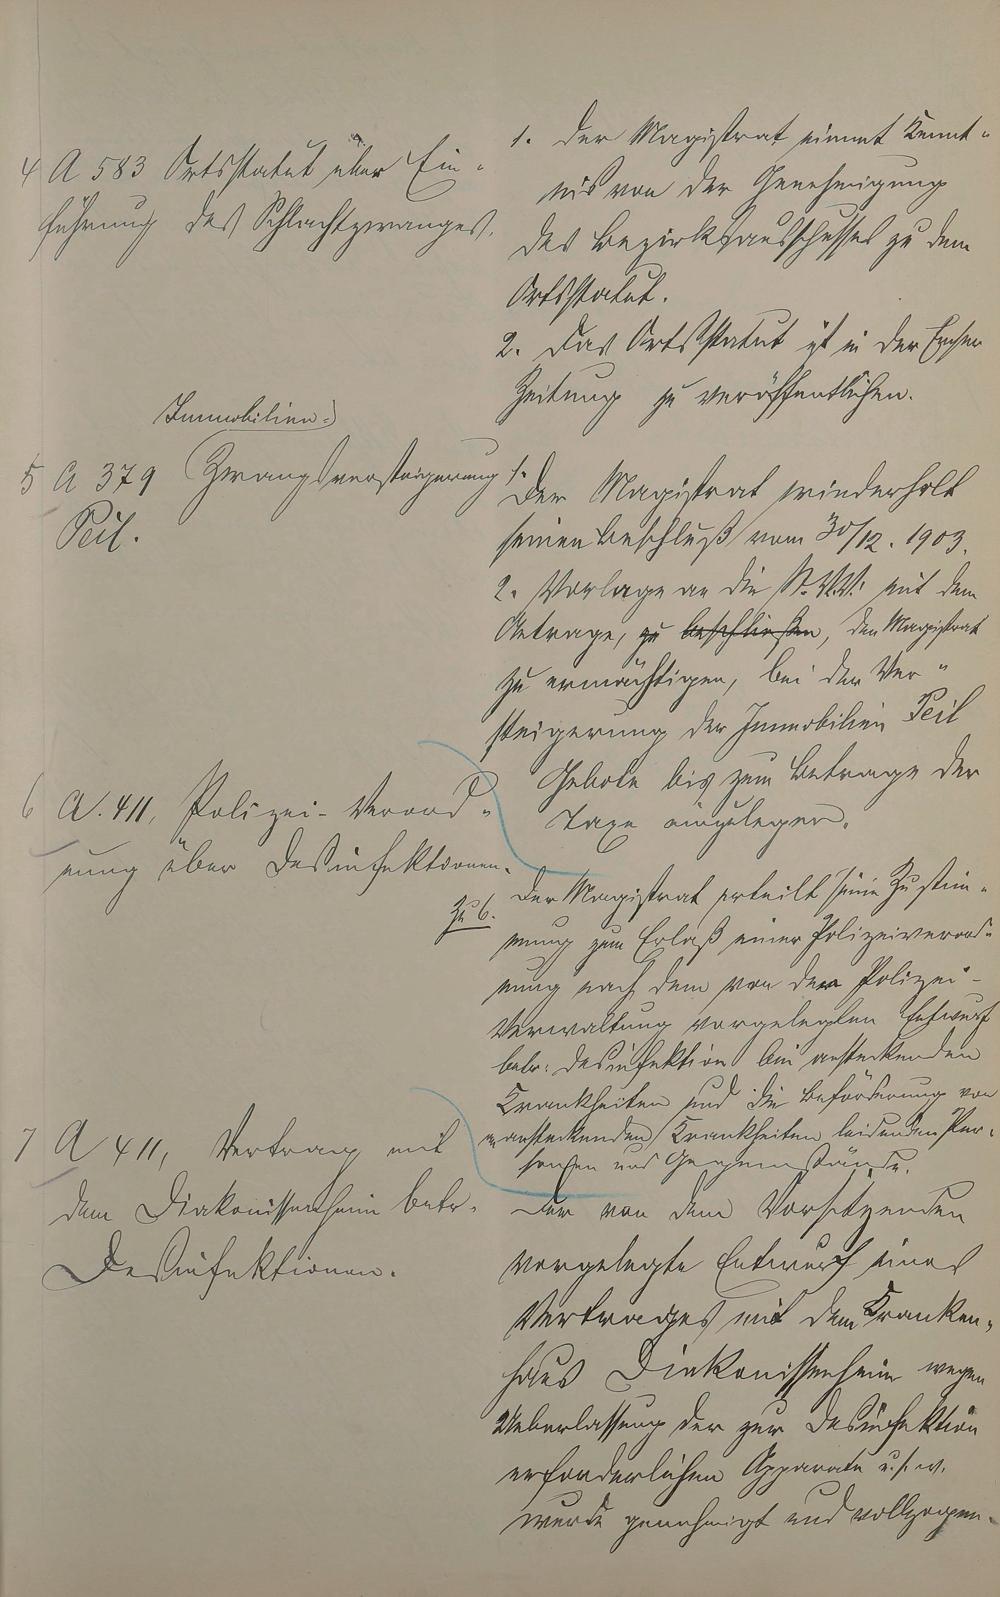 4 A 583 Ortsstatut über Ein-
führung des Schlachtzwanges.
1. Der Magistrat nimmt Kennt-
nis von der Genehmigung
des Bezirksausschusses zu dem
Ortsstatut.
2. Das Ortsstatut ist in der
Zeitung zu veröffentlichen.
Immobilien
5 A 379 Zwangsversteigerung
Peil.
1. Der Magistrat wiederholt
seinen Beschluß vom 30/12. 1903.
2. Vorlage an die St. V.V. mit dem
Antrage, zu beschließen, den Magistrat
zu ermächtigen, bei der Ver-
steigerung der Immobilien Peil
Gebote bis zum Betrage der
Taxe einzulegen.
6 A. 411, Polizei-Verord-
nung über Desinfektionen.
Zu 6. Der Magistrat erteilt seine Zustim-
mung zum Erlaß einer Polizeiverord-
nung nach dem von der Polizei-
Verwaltung vorgelegten Entwurf
betr. Desinfektion bei ansteckenden
Krankheiten und die Beförderung von
an ansteckenden Krankheiten leidenden Per-
sonen und Gegenstände.
7 A 411, Vertrag mit
dem Diakonissenheim betr.
Desinfektionen.
Der von dem Vorsitzenden
vorgelegte Entwurf eines
Vertrages mit dem Kranken-
haus Diakonissenheim wegen
Ueberlassung der zur Desinfektion
erforderlichen Apparate u.s.w.
wurde genehmigt und vollzogen.